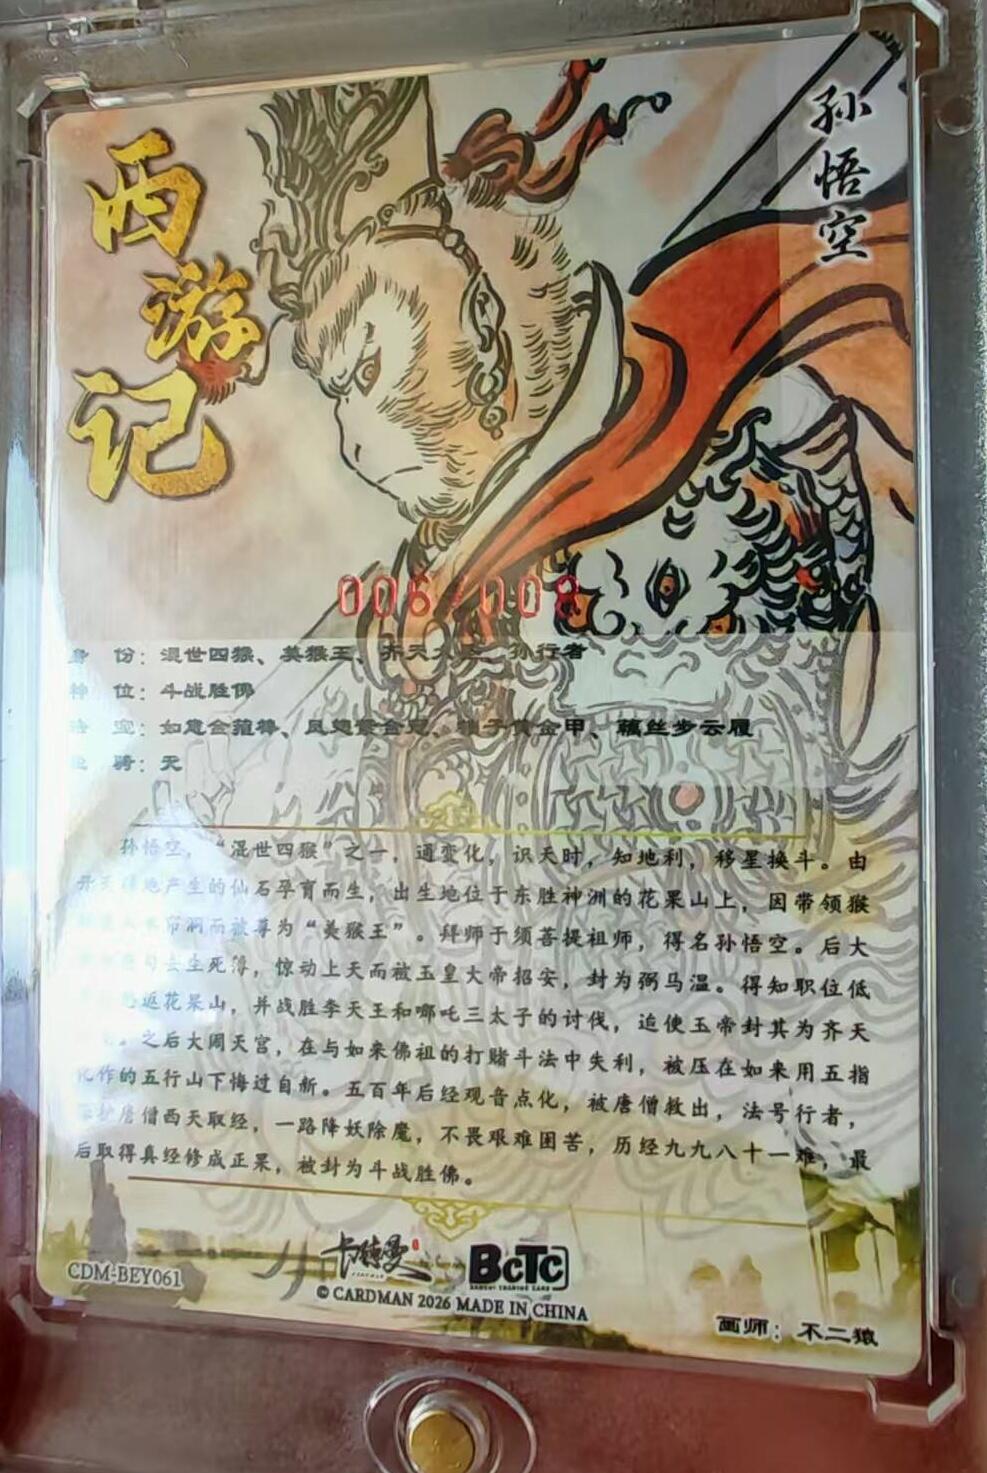 西游记
孙悟空
006/008
身 份：混世四猴、美猴王、齐天大圣、孙行者
神 位：斗战胜佛
法 宝：如意金箍棒、凤翅紫金冠、锁子黄金甲、藕丝步云履
骑：无
孙悟空，“混世四猴”之一，通变化，识天时，知地利，移星换斗。由
开天辟地产生的仙石孕育而生，出生地位于东胜神洲的花果山上，因带领猴
帘洞而被尊为“美猴王”。拜师于须菩提祖师，得名孙悟空。后大
去生死簿，惊动上天而被玉皇大帝招安，封为弼马温。得知职位低
返花果山，并战胜李天王和哪吒三太子的讨伐，迫使玉帝封其为齐天
。之后大闹天宫，在与如来佛祖的打赌斗法中失利，被压在如来用五指
化作的五行山下悔过自新。五百年后经观音点化，被唐僧救出，法号行者，
保护唐僧西天取经，一路降妖除魔，不畏艰难困苦，历经九九八十一难，最
后取得真经修成正果，被封为斗战胜佛。
卡游曼 BCTC
CDM-BEY061
© CARDMAN 2026 MADE IN CHINA
画师：不二猿